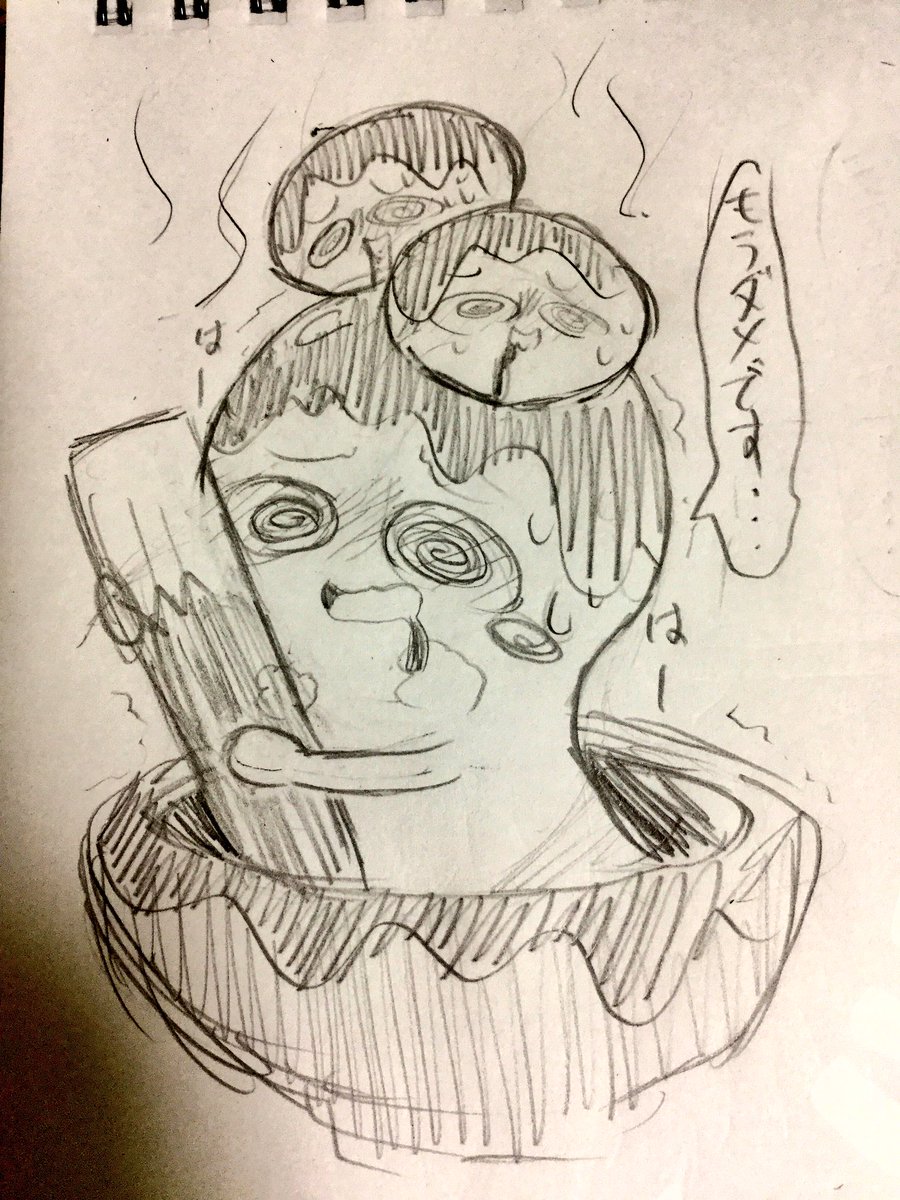 もうダメです‥
はー
はー